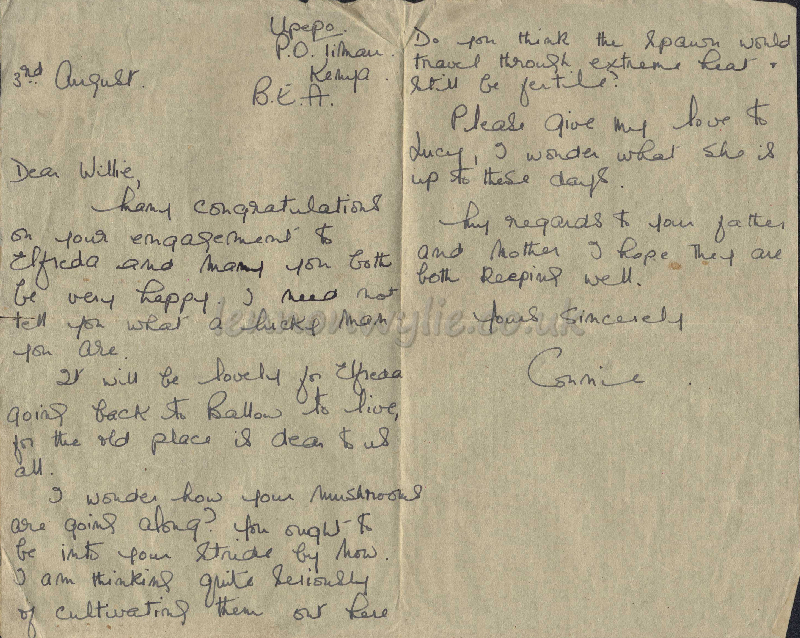 Upepo.
P.O. Timau.
Kenya.
B.E.A.
3rd August.
Dear Willie,
Many congratulations
on your engagement to
Elfreda and many you both
be very happy. I need not
tell you what a lucky man
you are.
It will be lovely for Elfreda
going back to Ballow to live,
for the old place is dear to us
all.
I wonder how your mushrooms
are going along? You ought to
be into your stride by now.
I am thinking quite seriously
of cultivating them out here
Do you think the spawn would
travel through extreme heat &
still be fertile?
Please give my love to
Lucy, I wonder what she is
up to these days.
My regards to your father
and Mother I hope they are
both keeping well.
Yours Sincerely
Connie.
lennonwylie.co.uk